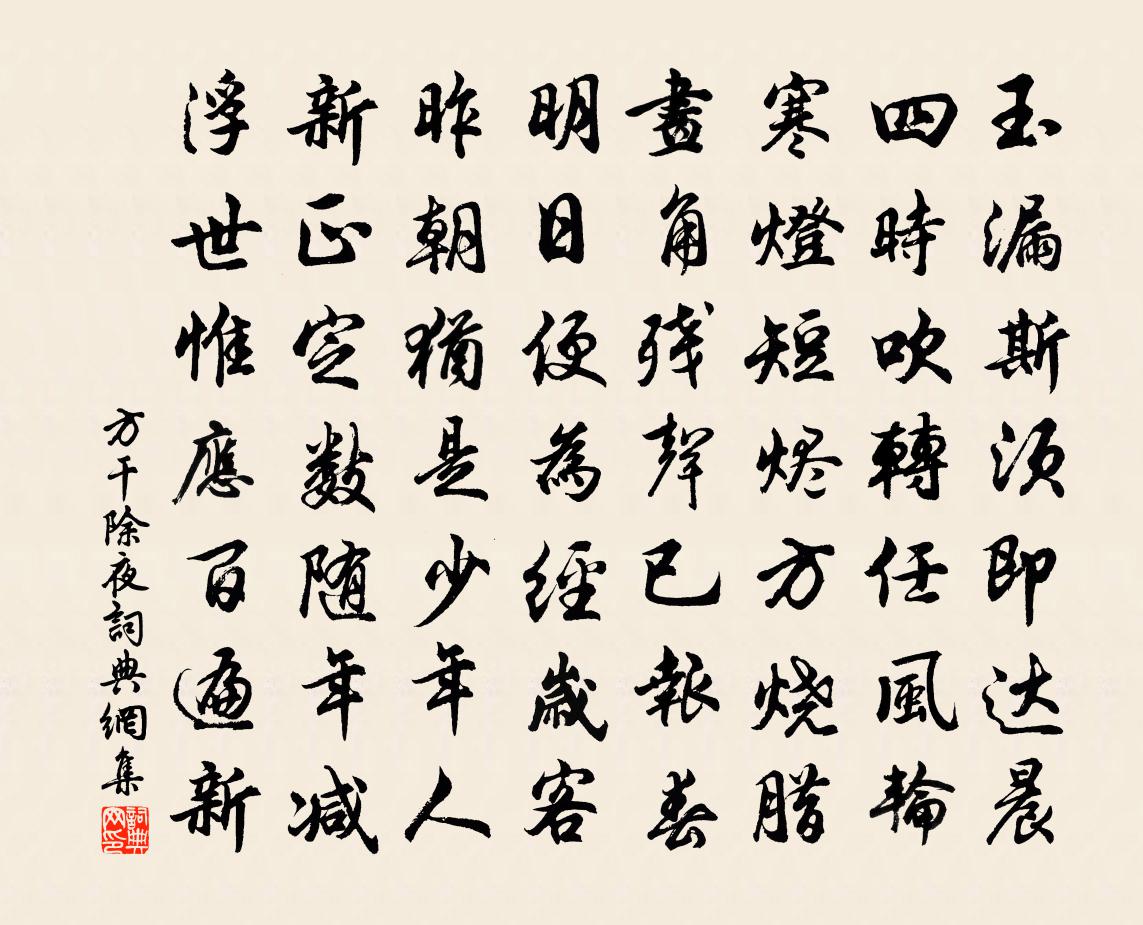 玉漏斯須即达晨
四時吹轉任風輪
寒燈短烬方燒腊
畫角残聲已報春
明日便為經歲客
昨朝猶是少年人
新正定數随年减
浮世惟應百遍新
方干除夜詞典網集
詞典网印